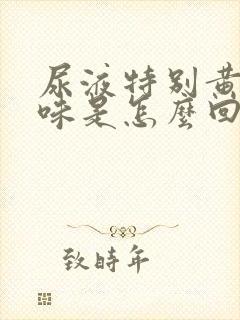 尿液特别黄
味是怎麼回
致時年